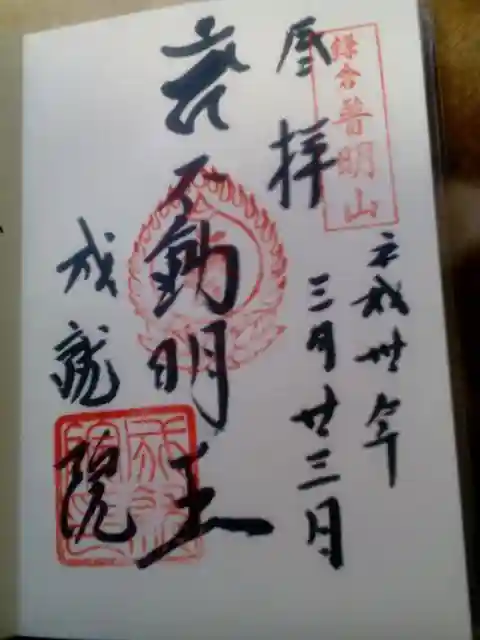 鎌倉普明山
平成卅年
奉拝
三月廿三日
不動明王
成就院